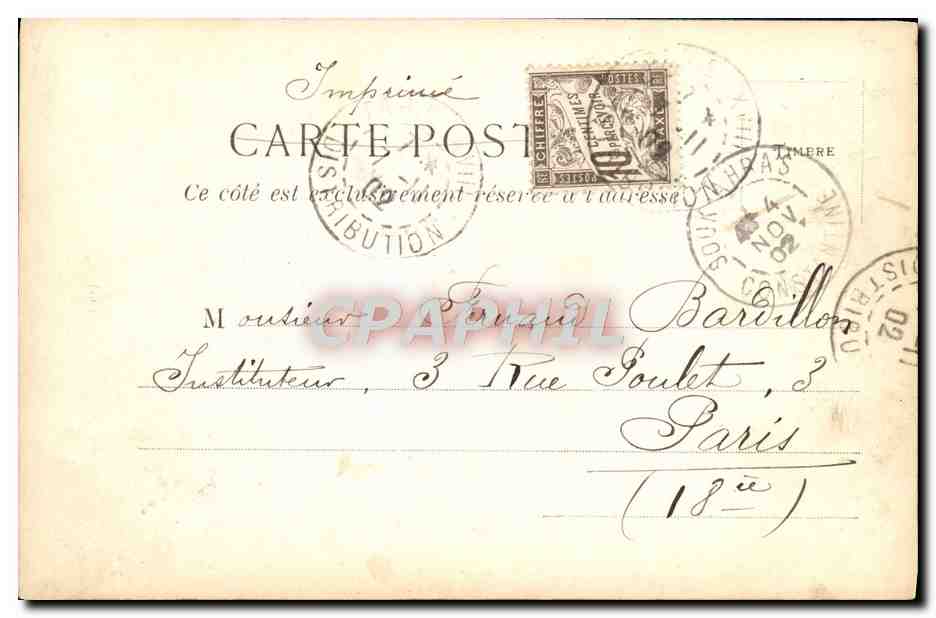 Imprimé
CARTE POST
TIMBRE
Ce côté est exclusivement réservé à l'adresse
CHIFFRE
POSTES
TAXE
POSTES
10
CENTIMES
À PERCEVOIR
DISTRIBUTION
02
XVIII
SOUK AHRAS
4
NOV
02
CONSTANTINE
DISTRIBU
02
Monsieur Fernand Bardillon
Instituteur, 3 Rue Poulet, 3
Paris
(18ie)
CPAPHIL